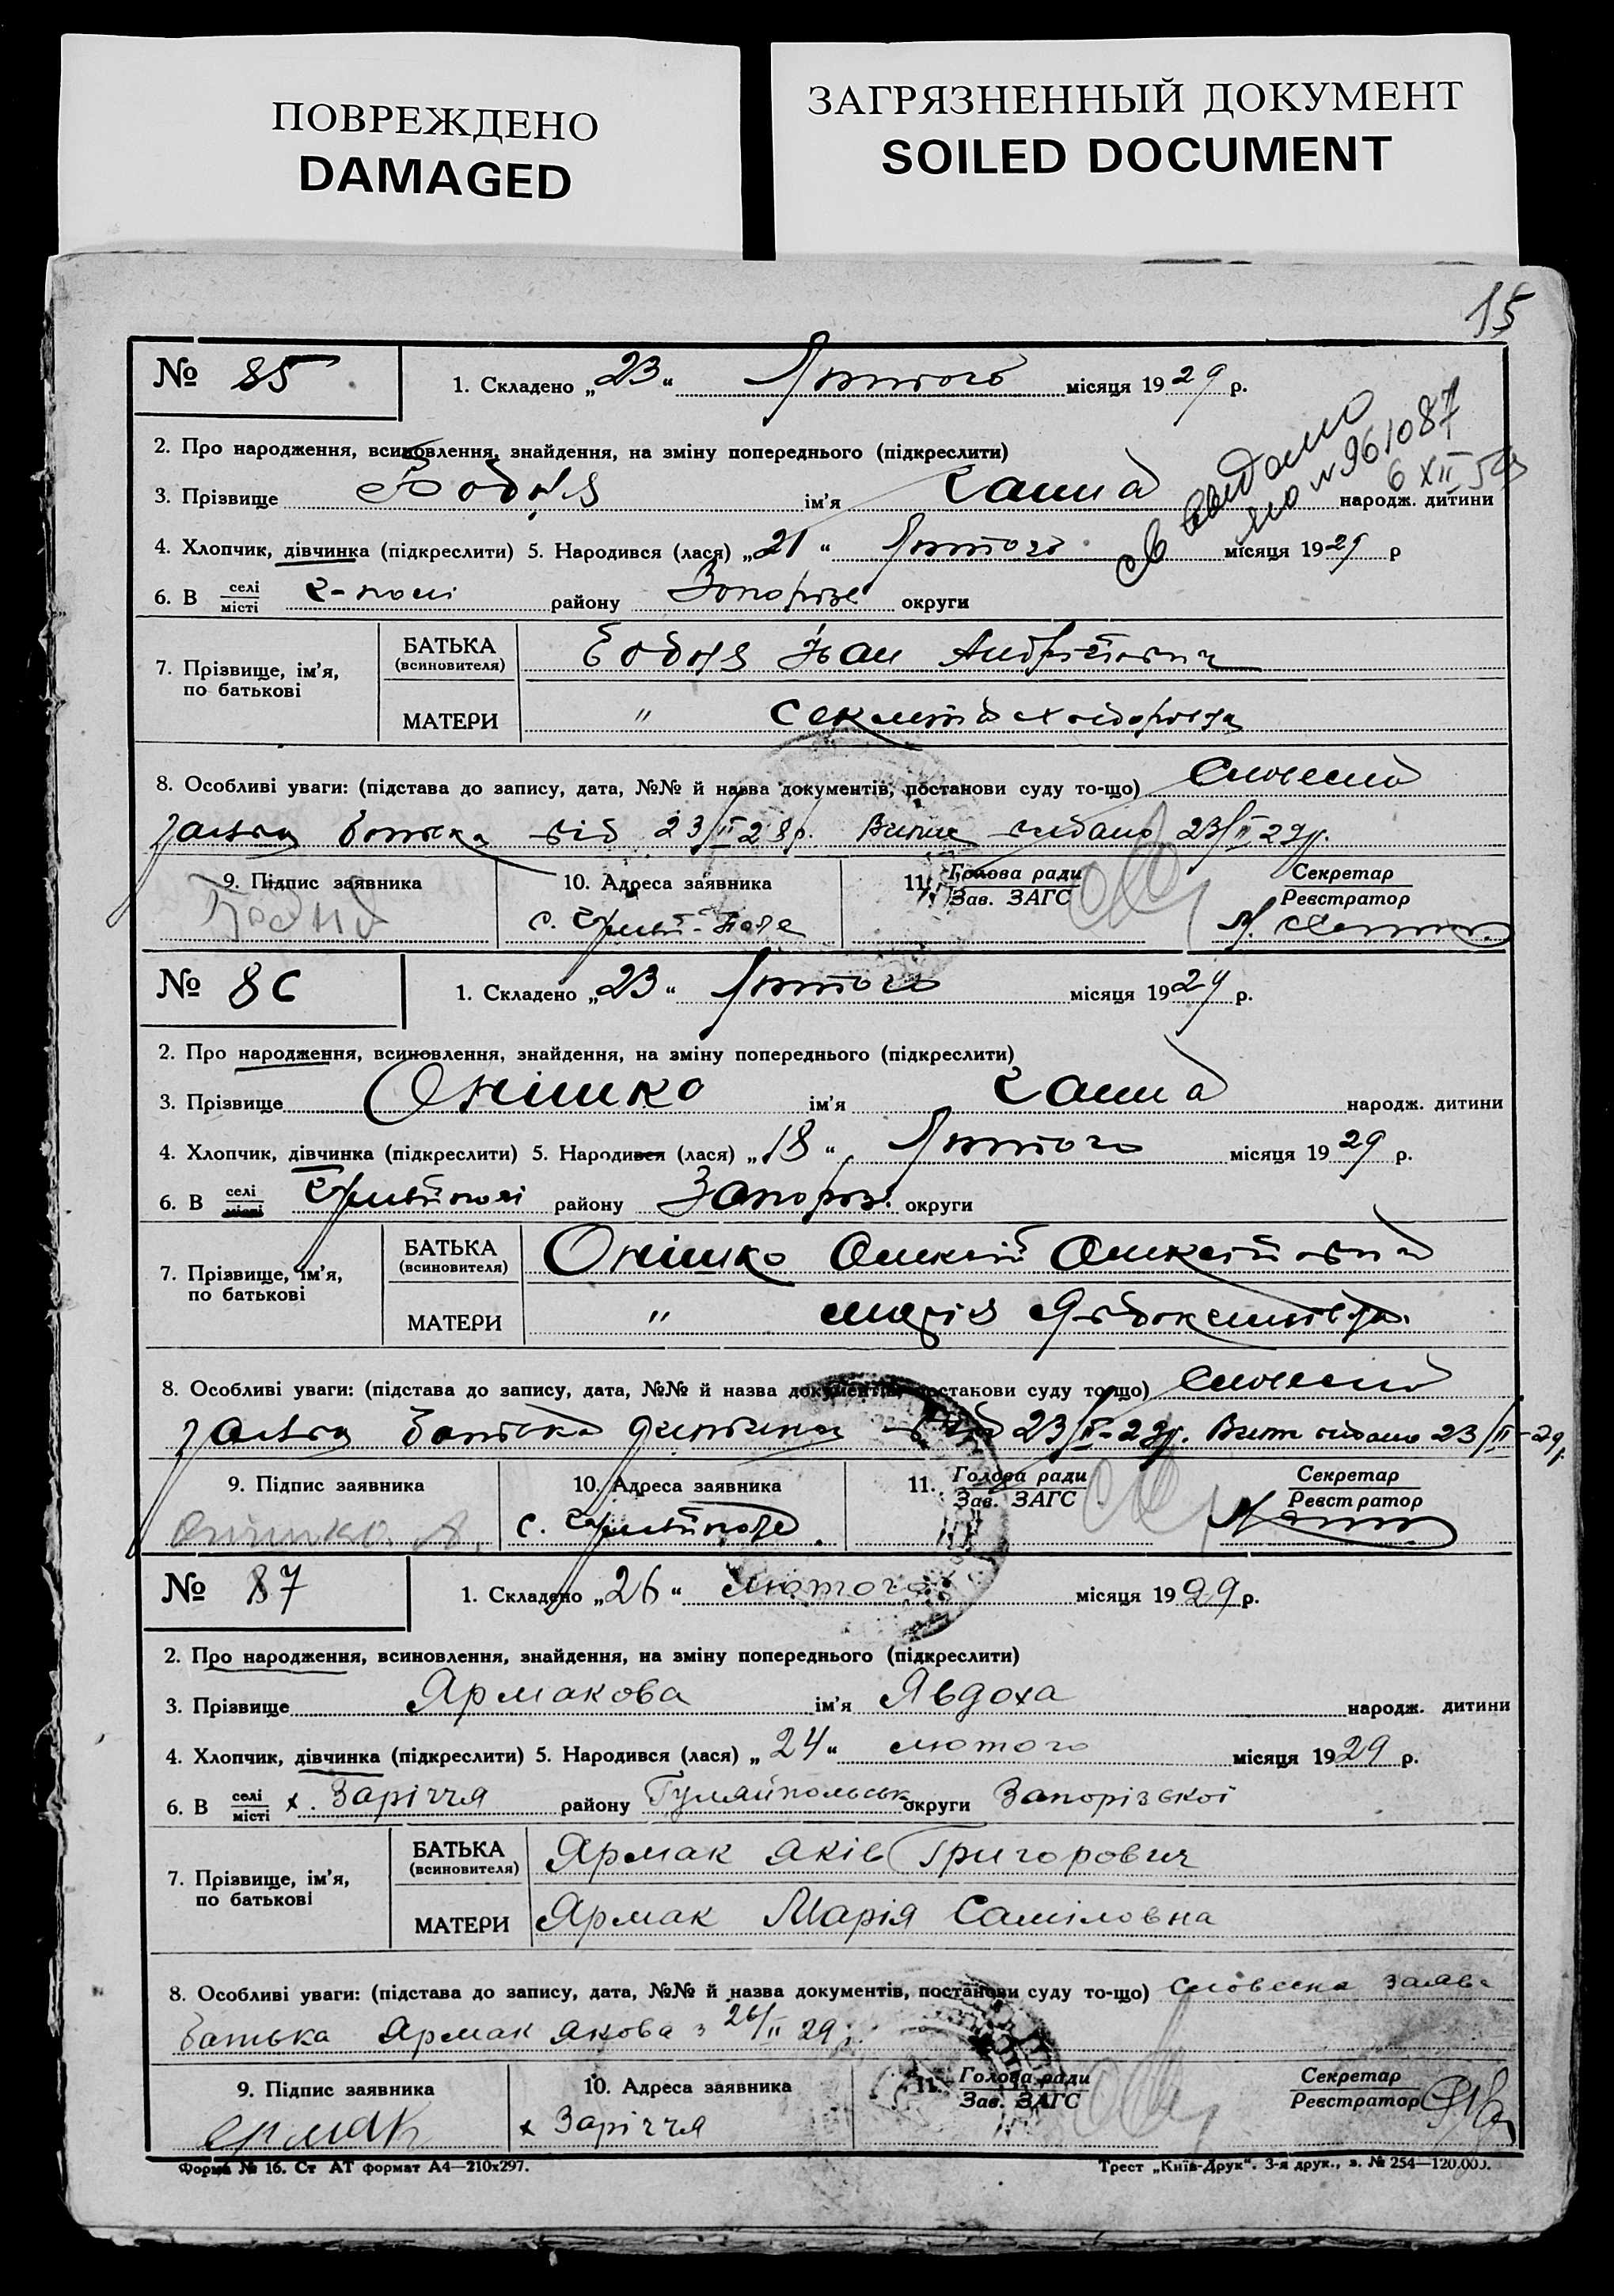 ПОВРЕЖДЕНО
DAMAGED
ЗАГРЯЗНЕННЫЙ ДОКУМЕНТ
SOILED DOCUMENT
15
№ 85
1. Складено „23“ Лютого місяця 1929 р.
2. Про народження, всиновлення, знайдення, на зміну попереднього (підкреслити)
3. Прізвище ім’я Ганна народж. дитини
№ 961087
6 XII
4. Хлопчик, дівчинка (підкреслити) 5. Народився (лася) „21“ Лютого місяця 1929 р
6. В селі місті Г-полі району Запорізь округи
7. Прізвище, ім’я, по батькові
БАТЬКА (всиновителя) Іван Андрійович
МАТЕРИ "
8. Особливі уваги: (підстава до запису, дата, №№ й назва документів, постанови суду то-що) Словесна
заява батька від 23/II 28р. Витяг видано 23/II 29р.
9. Підпис заявника
10. Адреса заявника
с. Гуляй-Поле
11. Голова ради Зав. ЗАГС
Секретар Реєстратор
№ 86
1. Складено „23“ Лютого місяця 1929 р.
2. Про народження, всиновлення, знайдення, на зміну попереднього (підкреслити)
3. Прізвище Онішко ім’я Ганна народж. дитини
4. Хлопчик, дівчинка (підкреслити) 5. Народився (лася) „18“ Лютого місяця 1929 р.
6. В селі місті Гуляйполі району Запорізь. округи
7. Прізвище, ім’я, по батькові
БАТЬКА (всиновителя) Онішко Олексій Олексійович
МАТЕРИ " Марія
8. Особливі уваги: (підстава до запису, дата, №№ й назва документів, постанови суду то-що) Словесна
заява батька дитини від 23/II-29р. Витяг видано 23/II-29р.
9. Підпис заявника
Онішко А.
10. Адреса заявника
с. Гуляйполе.
11. Голова ради Зав. ЗАГС
Секретар Реєстратор
№ 87
1. Складено „26“ лютого місяця 1929 р.
2. Про народження, всиновлення, знайдення, на зміну попереднього (підкреслити)
3. Прізвище Ярмакова ім’я Явдоха народж. дитини
4. Хлопчик, дівчинка (підкреслити) 5. Народився (лася) „24“ лютого місяця 1929 р.
6. В селі місті х. Заріччя району Гуляйпольськ округи Запорізької
7. Прізвище, ім’я, по батькові
БАТЬКА (всиновителя) Ярмак Яків Григорович
МАТЕРИ Ярмак Марія Саміловна
8. Особливі уваги: (підстава до запису, дата, №№ й назва документів, постанови суду то-що) Словесна заява
батька Ярмак Якова з 26/II 29р.
9. Підпис заявника
Ярмак
10. Адреса заявника
х Заріччя
11. Голова ради Зав. ЗАГС
Секретар Реєстратор
Форма № 16. Ст АТ формат А4—210х297.
Трест „Київ-Друк“. 3-я друк., з. № 254—120.000.